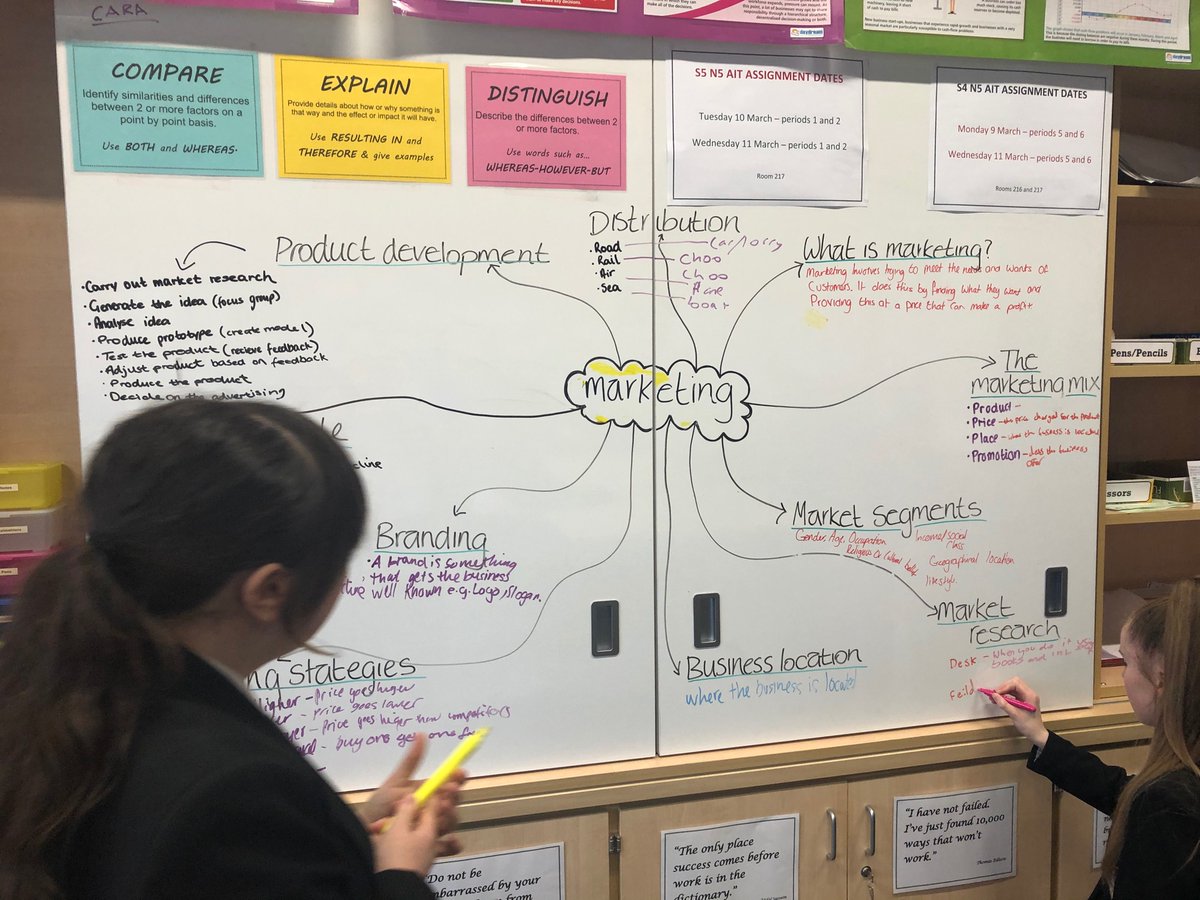 CARA
make all of these decisions.
COMPARE
Identify similarities and differences
between 2 or more factors on a
point by point basis.
Use BOTH and WHEREAS.
EXPLAIN
Provide details about how or why something is
that way and the effect or impact it will have.
Use RESULTING IN and
THEREFORE & give examples
DISTINGUISH
Describe the differences between 2
or more factors.
Use words such as...
WHEREAS-HOWEVER-BUT
S5 N5 AIT ASSIGNMENT DATES
Tuesday 10 March – periods 1 and 2
Wednesday 11 March – periods 1 and 2
Room 217
S4 N5 AIT ASSIGNMENT DATES
Monday 9 March – periods 5 and 6
Wednesday 11 March – periods 5 and 6
Rooms 216 and 217
marketing
Product development
• Carry out market research
• Generate the idea (focus group)
• Analyse idea
• Produce prototype (create model)
• Test the product (recieve feedback)
• Adjust product based on feedback
• Produce the product
• Decide on the advertising
Distribution
• Road Car/lorry
• Rail Choo
• Air Choo
• Sea Plane
boat
What is marketing?
Marketing involves trying to meet the needs and wants of
Customers. It does this by finding what they want and
Providing this at a price that can make a profit.
The
marketing mix
• Product –
• Price – the price charged for the product
• Place – where the business is located
• Promotion – deals the business
offer
Market segments
Gender, Age, Occupation Income/social
class
Religious or Cultural belief
Geographical location
lifestyle.
Market
research
Desk – When you do it
books and
Feild
Business location
where the business is located
Branding
• A brand is something
that gets the business
well known e.g. Logo, slogan.
stategies
Higher – Price goes huger
– Price goes lower
– Price goes huger than competitors
– buy one get one
Pens/Pencils
ssors
"Do not be
embarrassed by your
"The only place
success comes before
work is in the
dictionary."
"I have not failed.
I've just found 10,000
ways that won't
work."
Thomas Edison